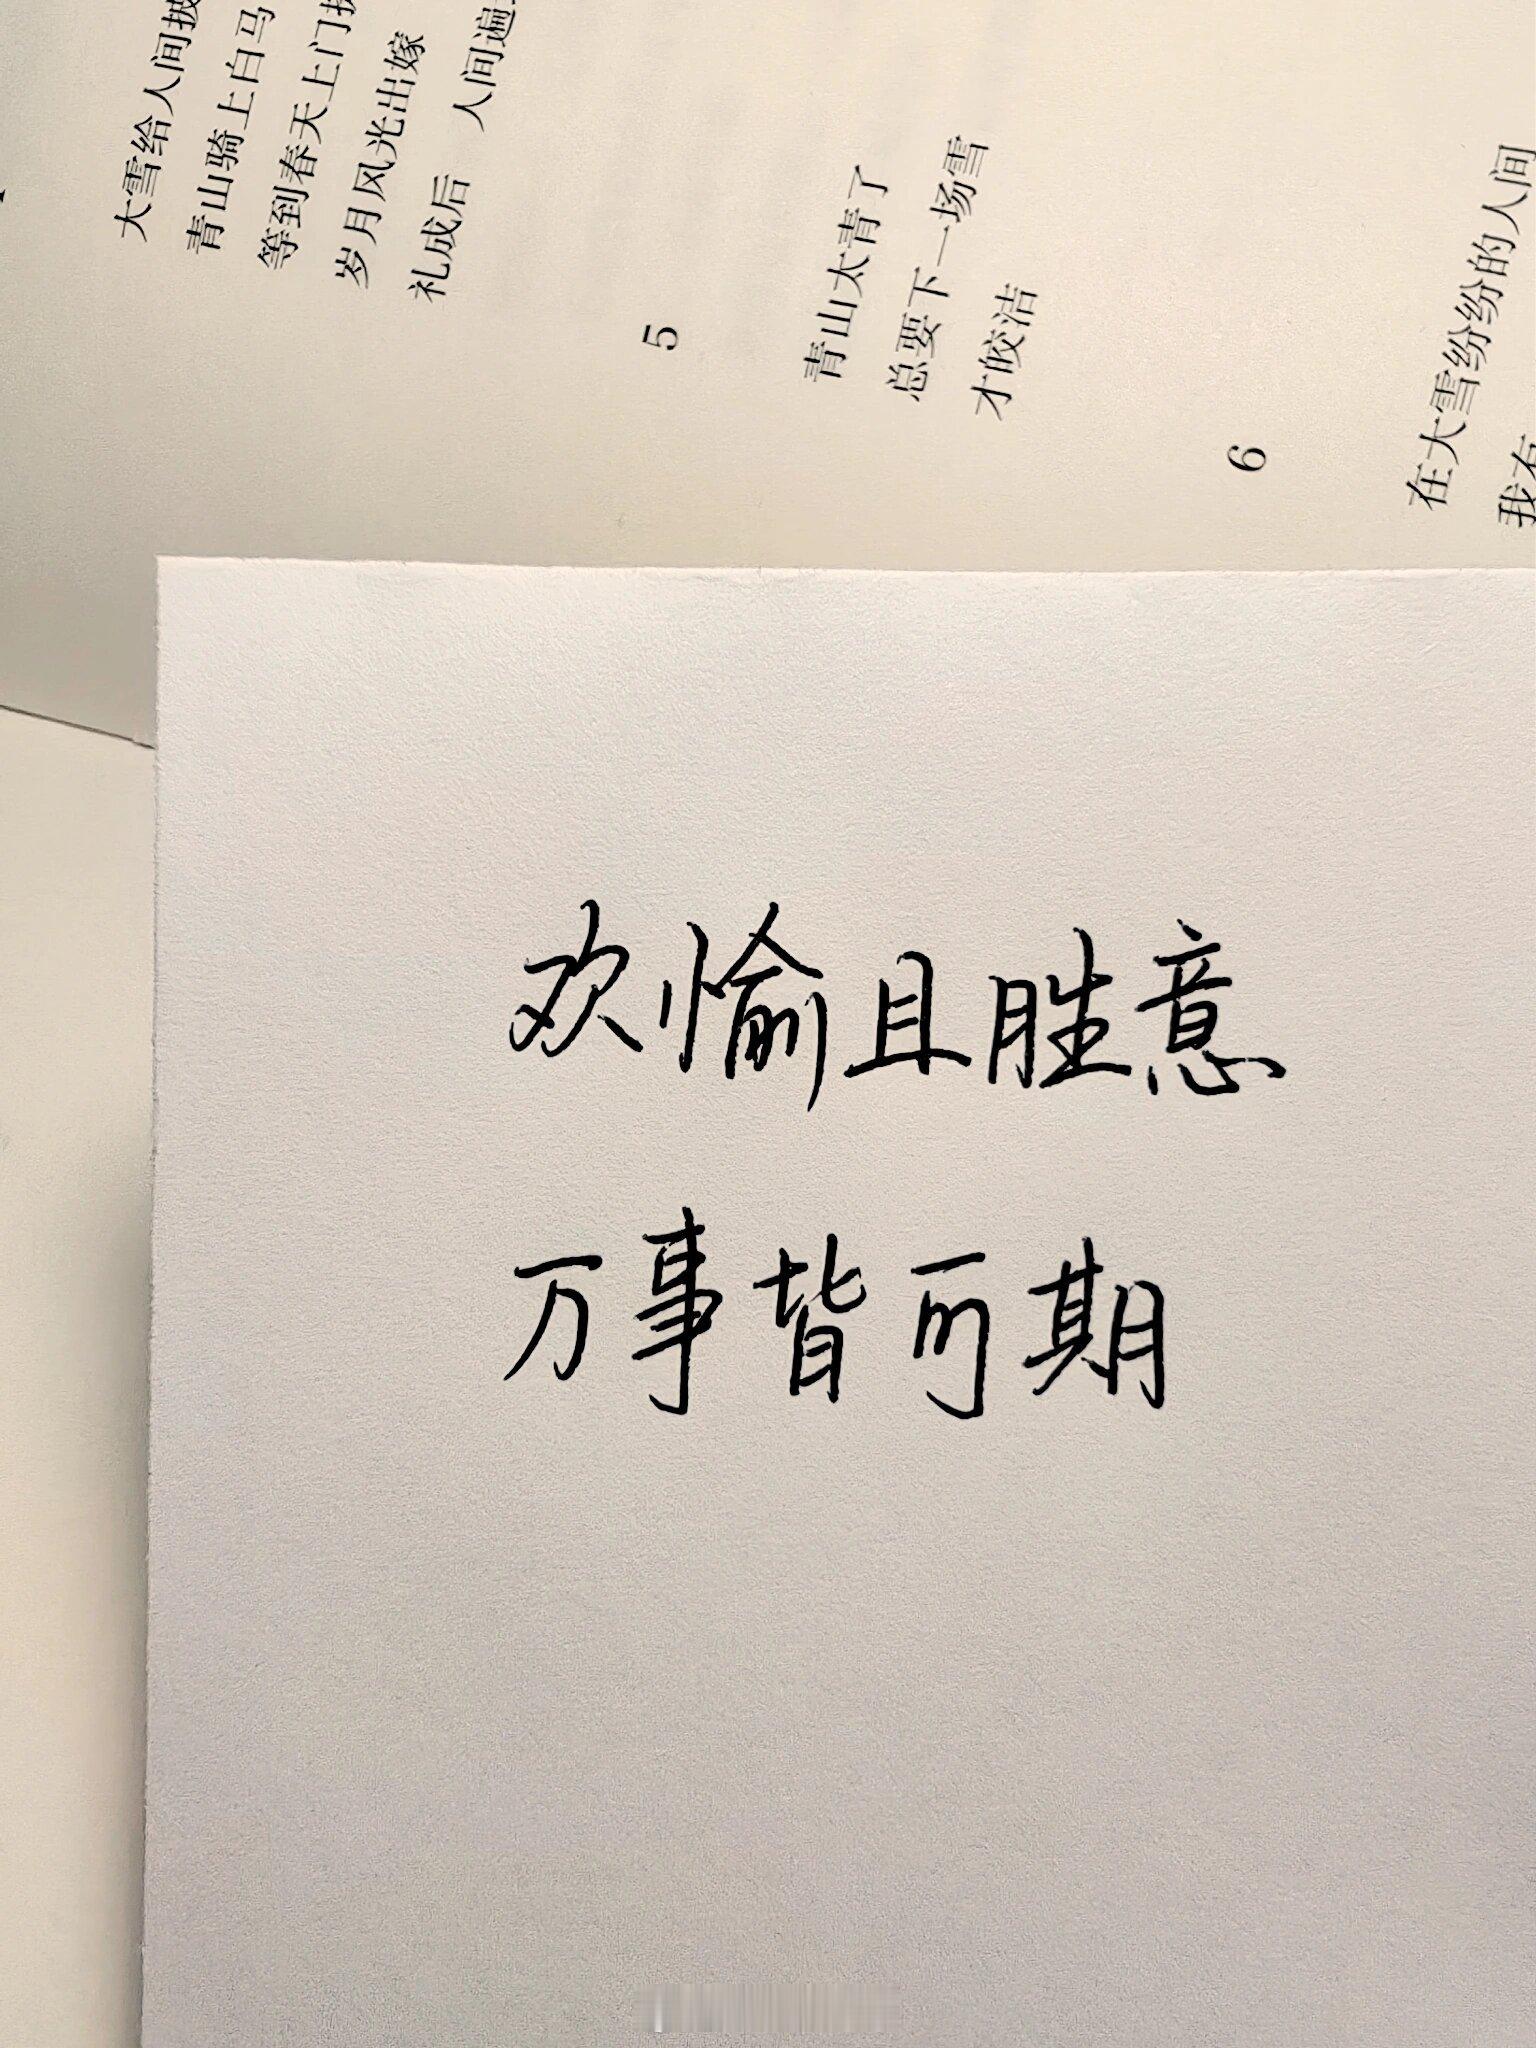 大雪给人间披
青山骑上白马
等到春天上门
岁月风光出嫁
礼成后 人间遍
5
青山太青了
总要下一场雪
才皎洁
6
在大雪纷纷的人间
我有
欢愉且胜意
万事皆可期